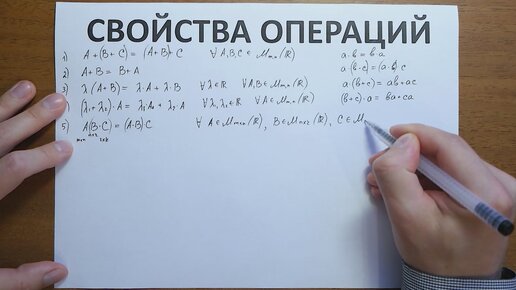 СВОЙСТВА ОПЕРАЦИЙ
1) A+(B+C) = (A+B)+C ∀ A,B,C ∈ Mmn(ℝ) a·b = b·a
2) A+B = B+A a·(b·c) = (a·b)·c
3) λ(A+B) = λ·A + λ·B ∀ λ∈ℝ ∀ A,B ∈ Mmn(ℝ) a·(b+c) = ab+ac
(λ₁+λ₂)·A = λ₁A + λ₂A ∀ λ₁,λ₂∈ℝ ∀ A ∈ Mmn(ℝ) (b+c)·a = ba+ca
5) A(B·C) = (A·B)·C ∀ A∈Mmn(ℝ), B∈Mnk(ℝ), C∈M